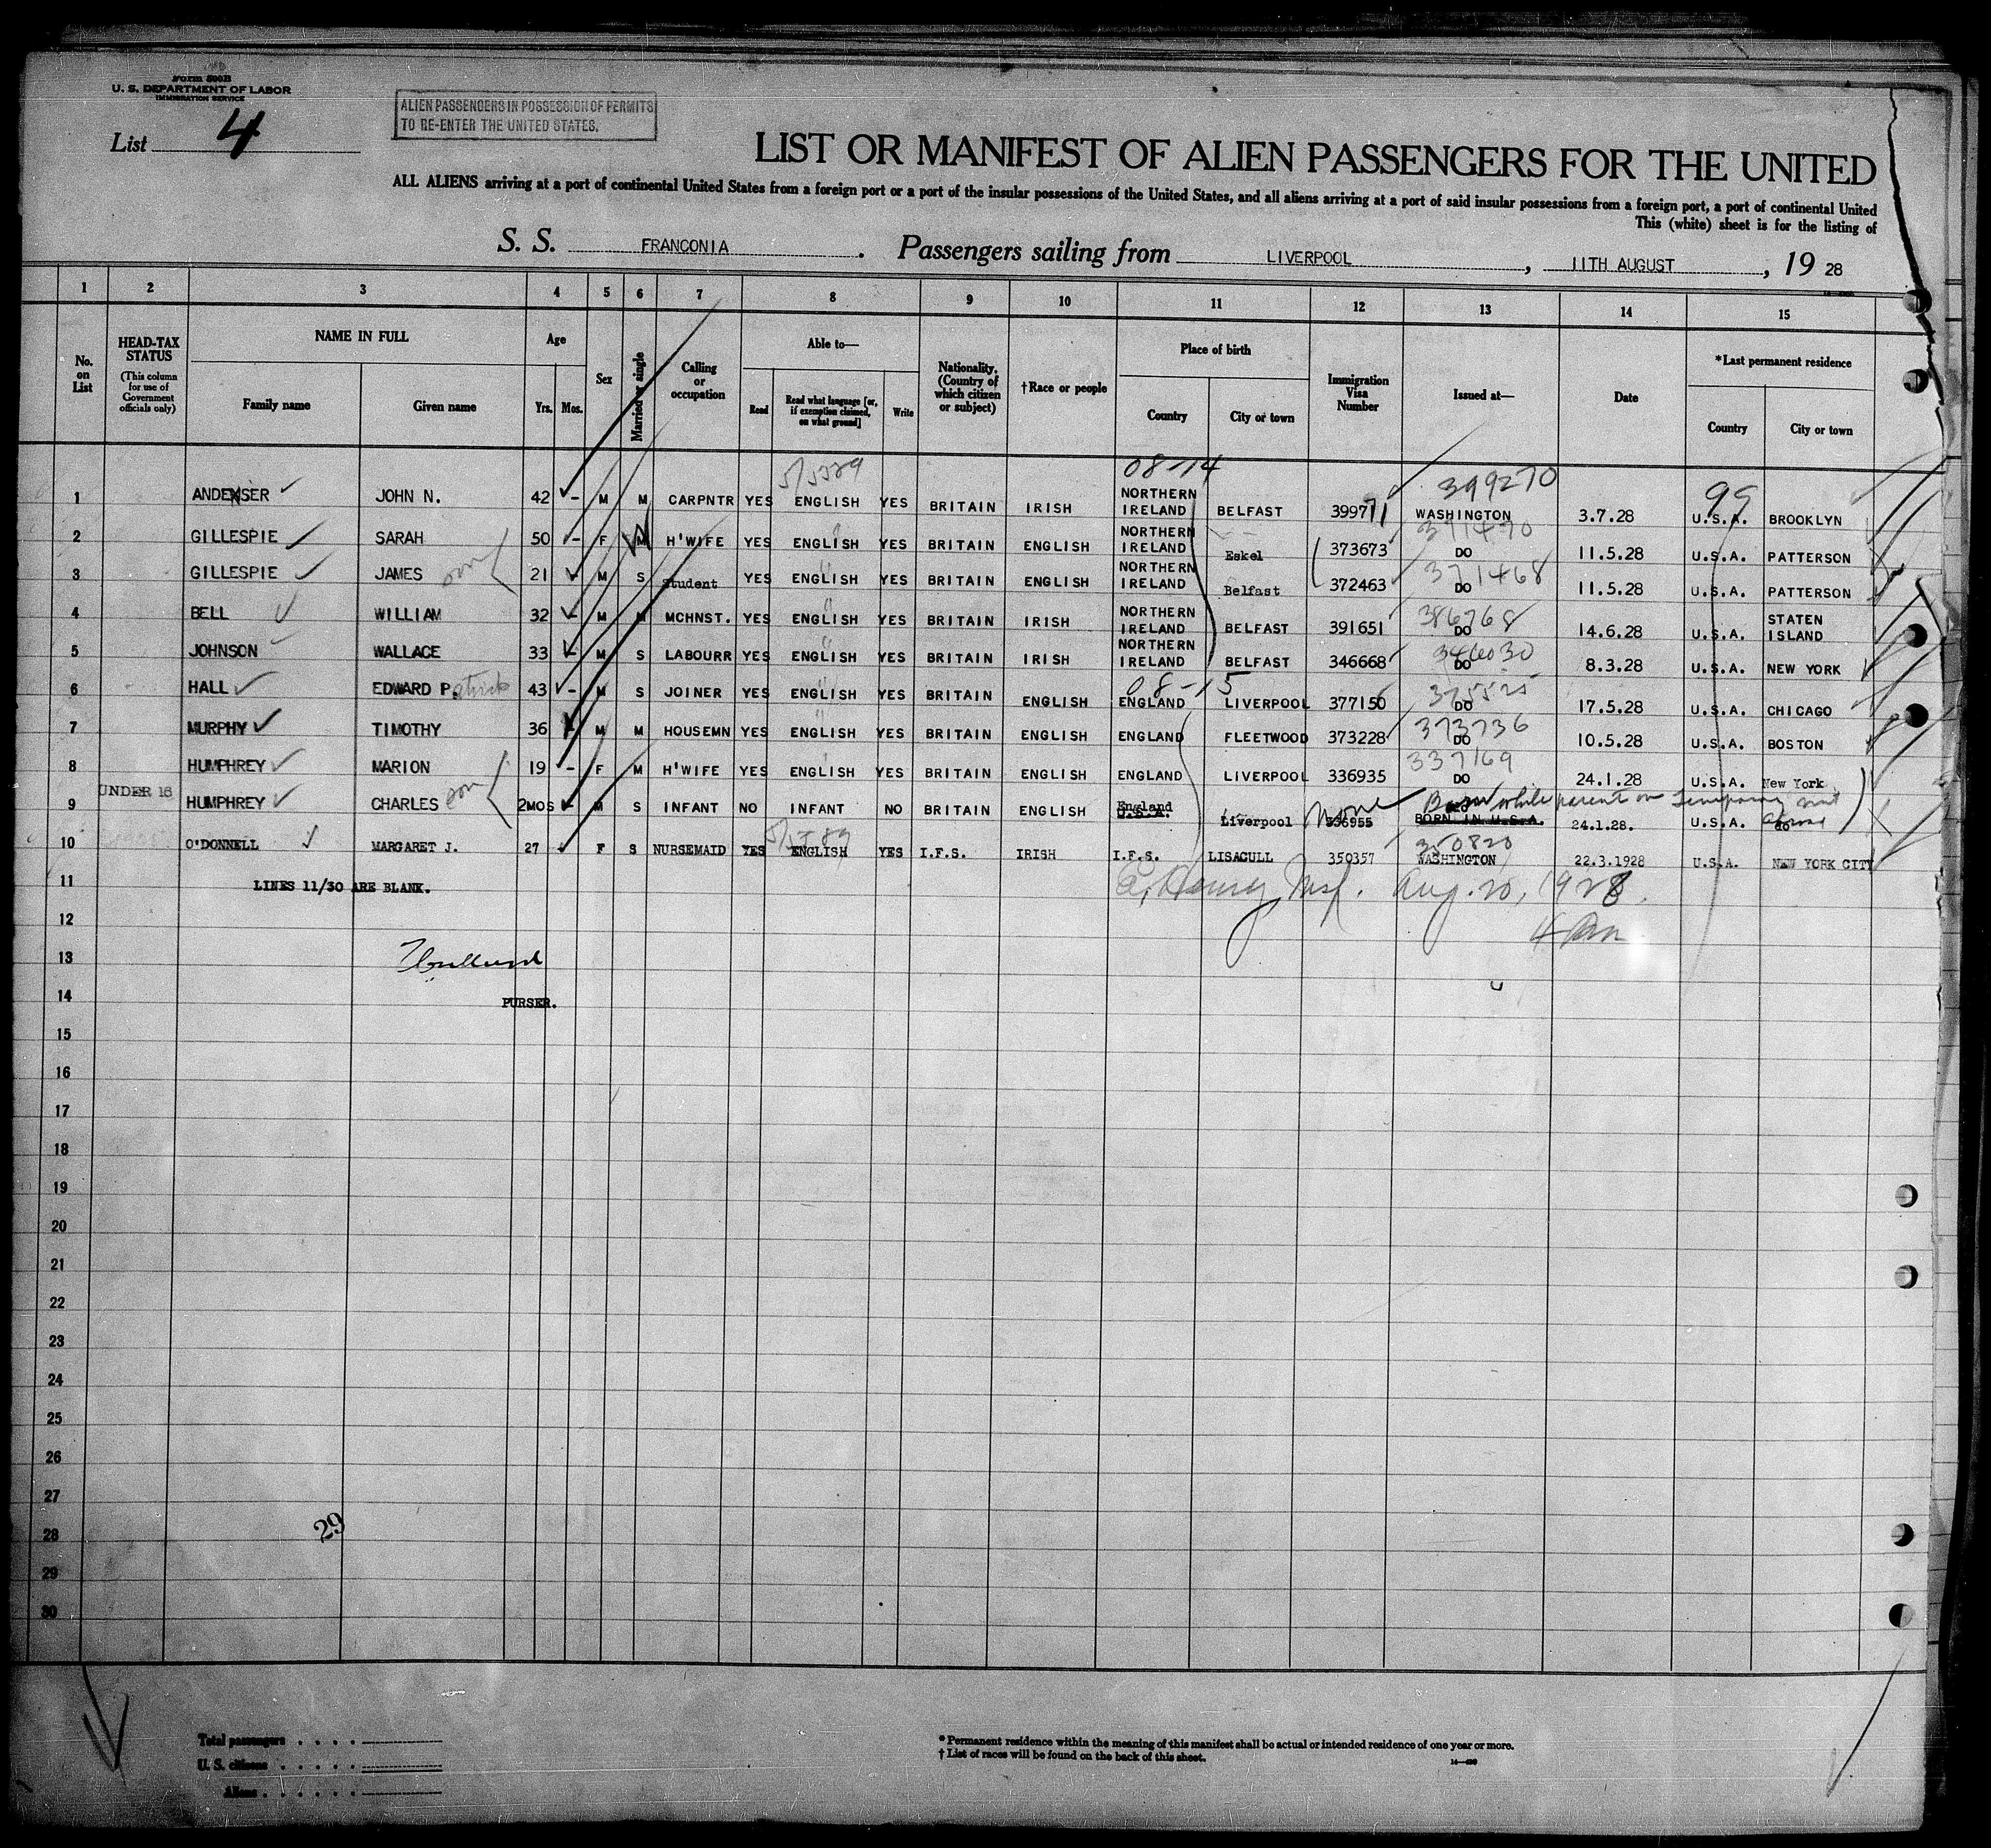 Form 500B
U. S. DEPARTMENT OF LABOR
IMMIGRATION SERVICE
List 4
ALIEN PASSENGERS IN POSSESSION OF PERMITS
TO RE-ENTER THE UNITED STATES.
LIST OR MANIFEST OF ALIEN PASSENGERS FOR THE UNITED
ALL ALIENS arriving at a port of continental United States from a foreign port or a port of the insular possessions of the United States, and all aliens arriving at a port of said insular possessions from a foreign port, a port of continental United
This (white) sheet is for the listing of
S. S. FRANCONIA. Passengers sailing from LIVERPOOL, 11TH AUGUST, 19 28
1 2 3 4 5 6 7 8 9 10 11 12 13 14 15
No. on List
HEAD-TAX STATUS
(This column for use of Government officials only)
NAME IN FULL
Family name Given name
Age
Yrs. Mos.
Sex
Married or single
Calling or occupation
Able to—
Read Read what language [or, if exemption claimed, on what ground] Write
Nationality. (Country of which citizen or subject)
†Race or people
Place of birth
Country City or town
Immigration Visa Number
Issued at—
Date
*Last permanent residence
Country City or town
5/5389 08-14 399270 99
1 ANDENSER JOHN N. 42 - M M CARPNTR YES ENGLISH YES BRITAIN IRISH NORTHERN IRELAND BELFAST 399711 WASHINGTON 3.7.28 U.S.A. BROOKLYN
371470
2 GILLESPIE SARAH 50 - F M H'WIFE YES ENGLISH YES BRITAIN ENGLISH NORTHERN IRELAND Eskel 373673 DO 11.5.28 U.S.A. PATTERSON
3 GILLESPIE JAMES son 21 - M S Student YES ENGLISH YES BRITAIN ENGLISH NORTHERN IRELAND Belfast 372463 371468 DO 11.5.28 U.S.A. PATTERSON
4 BELL WILLIAM 32 - M M MCHNST. YES ENGLISH YES BRITAIN IRISH NORTHERN IRELAND BELFAST 391651 386768 DO 14.6.28 U.S.A. STATEN ISLAND
5 JOHNSON WALLACE 33 - M S LABOURR YES ENGLISH YES BRITAIN IRISH NORTHERN IRELAND BELFAST 346668 DO 8.3.28 U.S.A. NEW YORK
08-15
6 HALL EDWARD Patrick 43 - M S JOINER YES ENGLISH YES BRITAIN ENGLISH ENGLAND LIVERPOOL 377150 375525 DO 17.5.28 U.S.A. CHICAGO
7 MURPHY TIMOTHY 36 - M M HOUSEMN YES ENGLISH YES BRITAIN ENGLISH ENGLAND FLEETWOOD 373228 373736 DO 10.5.28 U.S.A. BOSTON
8 HUMPHREY MARION 19 - F M H'WIFE YES ENGLISH YES BRITAIN ENGLISH ENGLAND LIVERPOOL 336935 337169 DO 24.1.28 U.S.A. New York
9 UNDER 16 HUMPHREY CHARLES son 2MOS - M S INFANT NO INFANT NO BRITAIN ENGLISH England U.S.A. Liverpool None 336955 Born while parent on temporary visit abroad BORN IN U.S.A. 24.1.28. U.S.A. do
10 O'DONNELL MARGARET J. 27 F S NURSEMAID YES ENGLISH YES I.F.S. IRISH I.F.S. LISACULL 350357 350820 WASHINGTON 22.3.1928 U.S.A. NEW YORK CITY
11 LINES 11/30 ARE BLANK. Insp. Aug. 20, 1928.
12
13
14 PURSER.
15
16
17
18
19
20
21
22
23
24
25
26
27
28 29
29
30
Total passengers
U. S. citizens
Aliens
* Permanent residence within the meaning of this manifest shall be actual or intended residence of one year or more.
† List of races will be found on the back of this sheet.